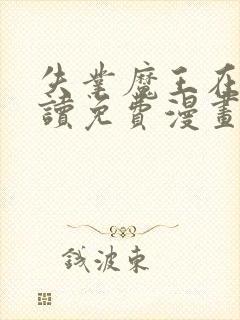 失業魔王在
讀免費漫畫
錢波東